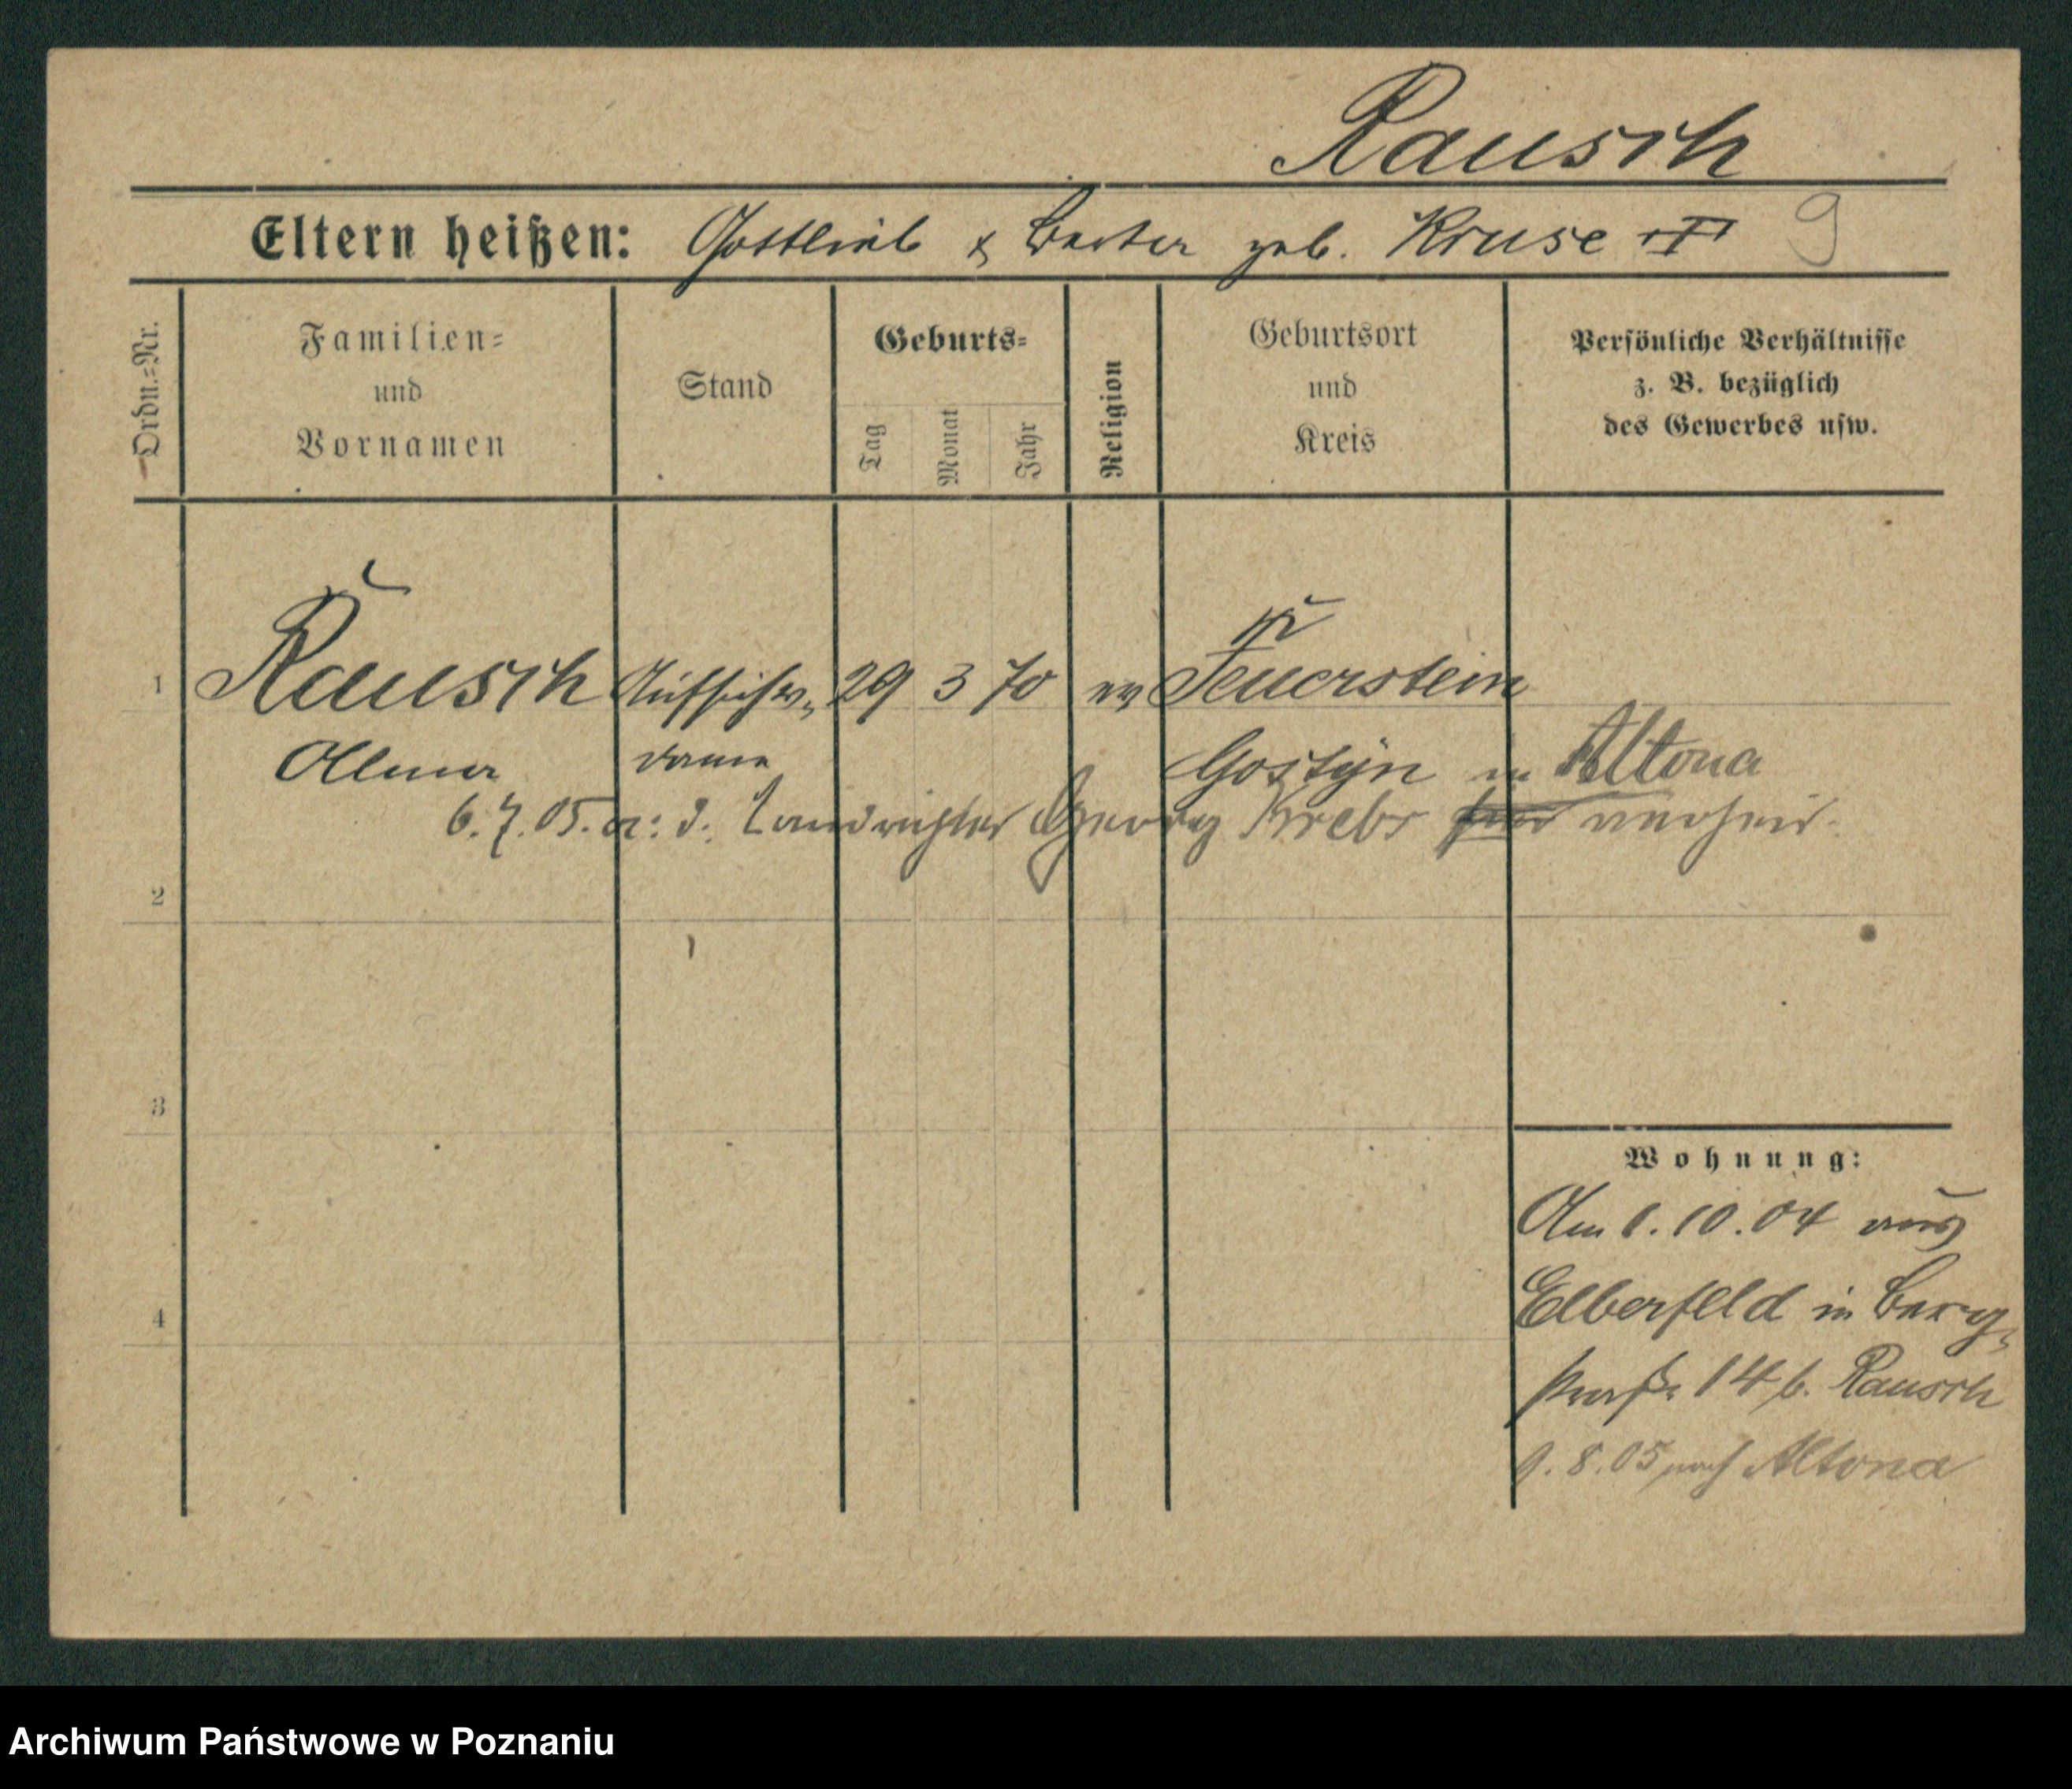 Rausch
Eltern heißen: Gottlieb & Berta geb. Kruse II 9
Ordn.=Nr.
Familien=
und
Vornamen
Stand
Geburts=
Tag
Monat
Jahr
Religion
Geburtsort
und
Kreis
Persönliche Verhältnisse
z. B. bezüglich
des Gewerbes usw.
1 Rausch Aufsichts- 29 3 70 ev Feuerstein
Olema dame Gostyn in Altona
6.7.05. m: d. Landrichter Georg Krebs verheir.
2
3
4
Wohnung:
Am 1.10.04 aus
Elberfeld in Berg-
straße 14 b. Rausch
9.8.05 nach Altona
Archiwum Państwowe w Poznaniu